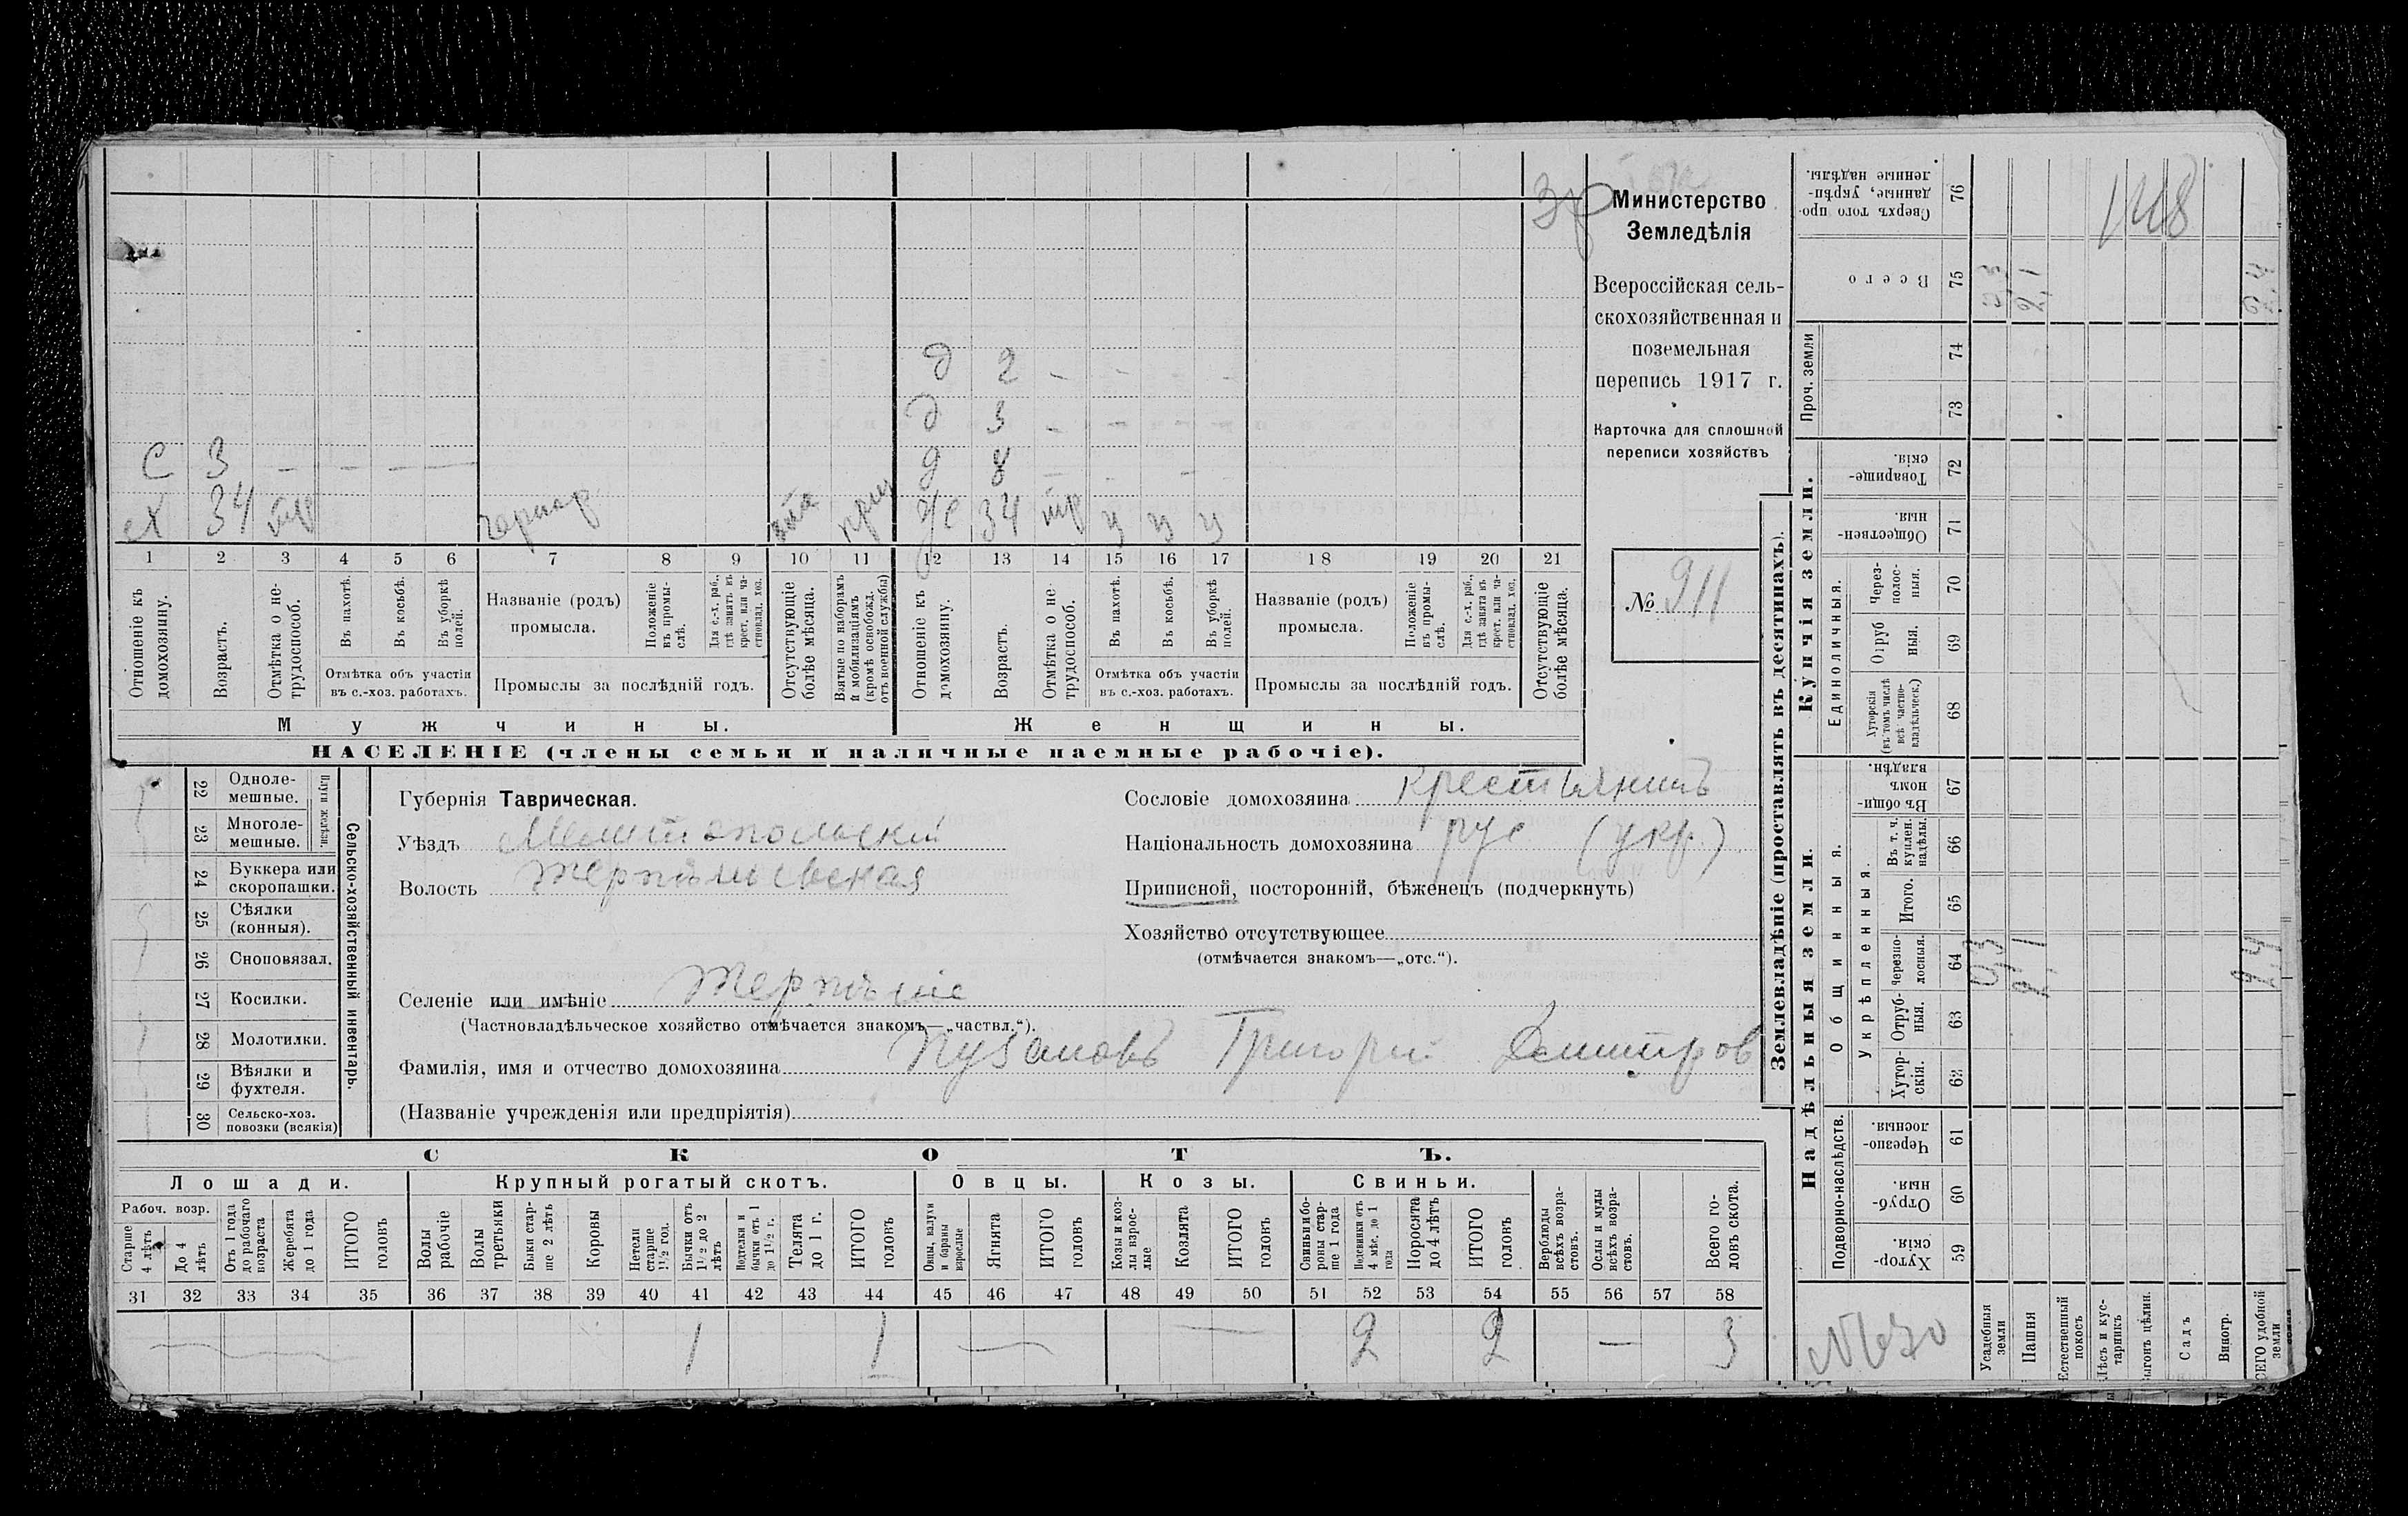 Зр
д 2 - - - -
д 3 - - - -
С 3 - - - д 8 - - -
Х 34 тр ЖЕ 34 тр у у у
1 2 3 4 5 6 7 8 9 10 11 12 13 14 15 16 17 18 19 20 21
Отношеніе къ домохозяину.
Возрастъ.
Отмѣтка о нетрудоспособ.
Въ пахотѣ.
Въ косьбѣ.
Въ уборкѣ полей.
Отмѣтка объ участіи въ с.-хоз. работахъ.
Названіе (родъ) промысла.
Положеніе въ промыслѣ.
Для с.-х. раб., гдѣ занятъ въ крест. или частновлад. хоз.
Промыслы за послѣдній годъ.
Отсутствующіе болѣе мѣсяца.
Взятые по наборамъ и мобилизаціямъ (кромѣ освобожд. отъ военной службы)
Отношеніе къ домохозяину.
Возрастъ.
Отмѣтка о нетрудоспособ.
Въ пахотѣ.
Въ косьбѣ.
Въ уборкѣ полей.
Отмѣтка объ участіи въ с.-хоз. работахъ.
Названіе (родъ) промысла.
Положеніе въ промыслѣ.
Для с.-х. раб., гдѣ занята въ крест. или частновлад. хоз.
Промыслы за послѣдній годъ.
Отсутствующіе болѣе мѣсяца.
Мужчины.
Женщины.
НАСЕЛЕНІЕ (члены семьи и наличные наемные рабочіе).
Министерство
Земледѣлія
Всероссійская сель-
скохозяйственная и
поземельная
перепись 1917 г.
Карточка для сплошной
переписи хозяйствъ
№ 911
22 Однолемешные.
23 Многолемешные.
Плуги желѣзн.
24 Буккера или скоропашки.
25 Сѣялки (конныя).
26 Сноповязал.
27 Косилки.
28 Молотилки.
29 Вѣялки и фухтеля.
30 Сельско-хоз. повозки (всякія)
Сельско-хозяйственный инвентарь.
Губернія Таврическая.
Уѣздъ Мелитопольскій
Волость Терпѣньевская
Селеніе или имѣніе Терпѣніе
(Частновладѣльческое хозяйство отмѣчается знакомъ—„частвл.“).
Фамилія, имя и отчество домохозяина Пузановъ Григорій Димитров
(Названіе учрежденія или предпріятія)
Сословіе домохозяина крестьянинъ
Національность домохозяина рус (укр.)
Приписной, посторонній, бѣженецъ (подчеркнуть)
Хозяйство отсутствующее
(отмѣчается знакомъ—„отс.“).
СКОТЪ.
Лошади. Крупный рогатый скотъ. Овцы. Козы. Свиньи.
Рабоч. возр.
Старше 4 лѣтъ
До 4 лѣтъ
Отъ 1 года до рабочаго возраста
Жеребята до 1 года
ИТОГО головъ
Волы рабочіе
Волы третьяки
Быки старше 2 лѣтъ
Коровы
Нетели старше 1½ год.
Бычки отъ 1½ до 2 лѣтъ
Подтелки и бычки отъ 1 до 1½ г.
Телята до 1 г.
ИТОГО головъ
Овцы, валухи и бараны взрослые
Ягнята
ИТОГО головъ
Козы и козлы взрослые
Козлята
ИТОГО головъ
Свиньи и боровы старше 1 года
Подсвинки отъ 4 мѣс. до 1 года
Поросята до 4 лѣтъ
ИТОГО головъ
Верблюды всѣхъ возрастовъ.
Ослы и мулы всѣхъ возрастовъ.
Всего головъ скота.
31 32 33 34 35 36 37 38 39 40 41 42 43 44 45 46 47 48 49 50 51 52 53 54 55 56 57 58
1 1 2 2 — 3
Землевладѣніе (проставлять въ десятинахъ).
Сверхъ того проданные, укрѣпленные надѣлы. 76
1418
Всего 75 0,3 2,1 2,4
Проч. земли 74 73
Купчія земли.
Товарищескія. 72
Общественныя. 71
Единоличныя.
Черезполосныя. 70
Отрубныя. 69
Хуторскія (въ томъ числѣ всѣ частновладѣльческ.) 68
Надѣльныя земли.
Общинныя.
Въ общинномъ владѣн. 67
Укрѣпленныя.
Въ т. ч. куплен. надѣлы. 66
Итого. 65
Черезполосныя. 64 0,3 2,1 2,4
Отрубныя. 63
Хуторскія. 62
Подворно-наслѣдств.
Черезполосныя. 61
Отрубныя. 60
Хуторскія. 59
Усадебныя земли
Пашня
Естественный покосъ
Лѣсъ и кустарникъ
Выгонъ цѣлин.
Садъ
Виногр.
ВСЕГО удобной земли